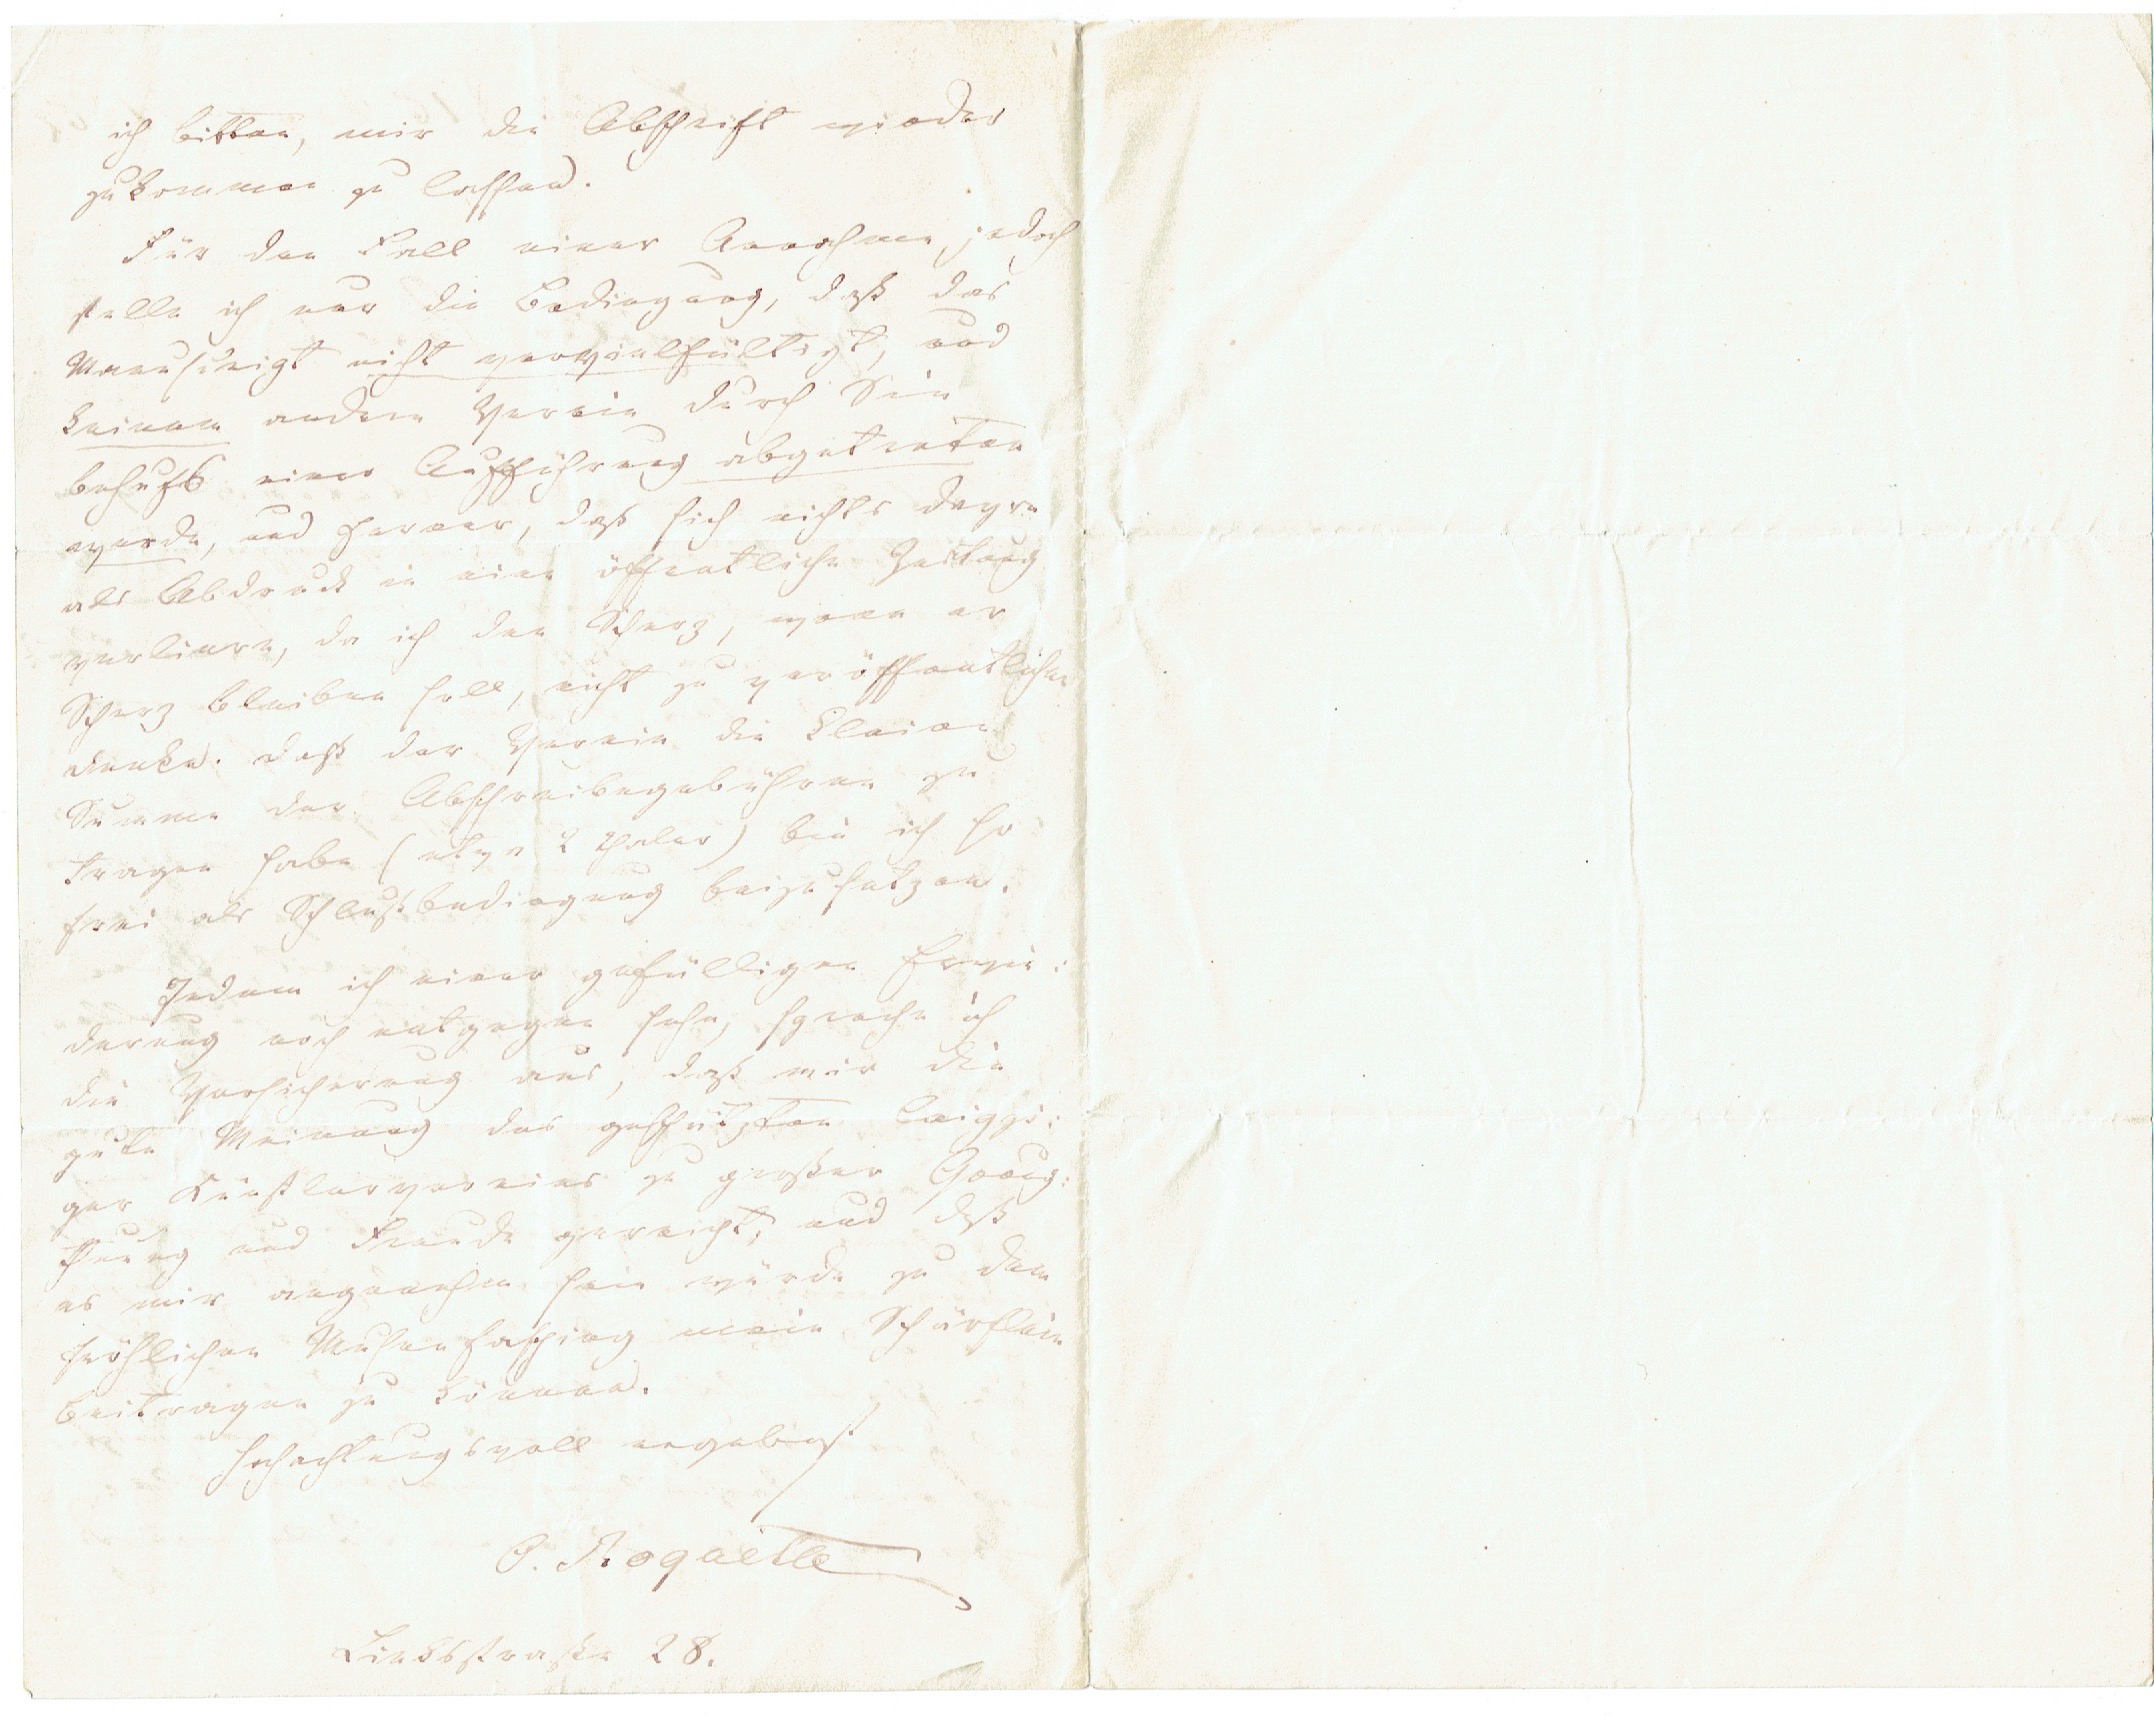 ich bitten, mir die Abschrift wieder
zukommen zu lassen.
Für den Fall einer Annahme, jedoch
stelle ich nur die Bedingung, daß das
Manuscript nicht vervielfältigt, und
keinem andern Verein durch Sie
behufs einer Aufführung abgetreten
werde, und ferner, daß sich nichts davon
als Abdruck in eine öffentliche Zeitung
verliere, da ich den Scherz, wenn er
Scherz bleiben soll, nicht zu veröffentlichen
denke. Daß der Verein die kleine
Summe der Abschreibegebühren zu
tragen habe (etwa 2 Thaler) bin ich so
frei als Schlußbedingung beizusetzen.
Indem ich einer gefälligen Erwie:
derung noch entgegen sehe, spreche ich
die Versicherung aus, daß mir die
gute Meinung des geschätzten Leipzi:
ger Künstlervereins zu großer Genug:
thuung und Freude gereicht, und daß
es mir angenehm sein würde zu dem
fröhlichen Musenfasching mein Schärflein
beitragen zu können.
Hochachtungsvoll ergebenst
O. Roquette
Linksstraße 28.